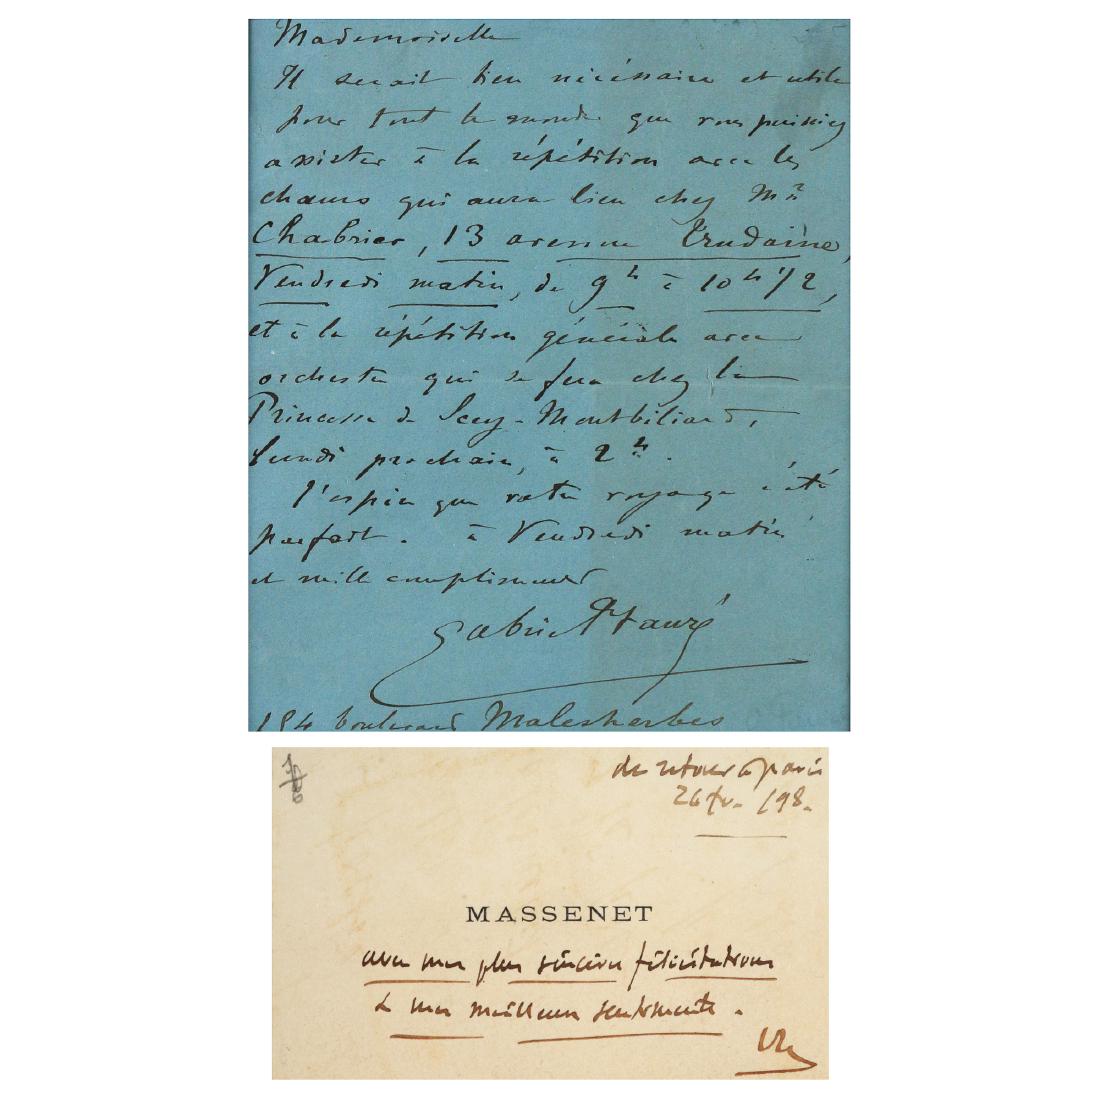 Mademoiselle
Il serait bien nécéssaire et utile
pour tout le monde que vous puissiez
assister à la répétition avec les
chœurs qui aura lieu chez Mr
Chabrier, 13 avenue Trudaine,
Vendredi matin, de 9h à 10h 1/2,
et à la répétition générale avec
orchestre qui se fera chez la
Princesse de Scey-Montbéliard,
Lundi prochain, à 2h.
J'espère que votre voyage a été
parfait. à Vendredi matin
et mille compliments
Gabriel Fauré
154 boulevard Malesherbes
de retour à Paris
26 fv. /98.
MASSENET
avec mes plus sincères félicitations
& mes meilleurs sentiments.